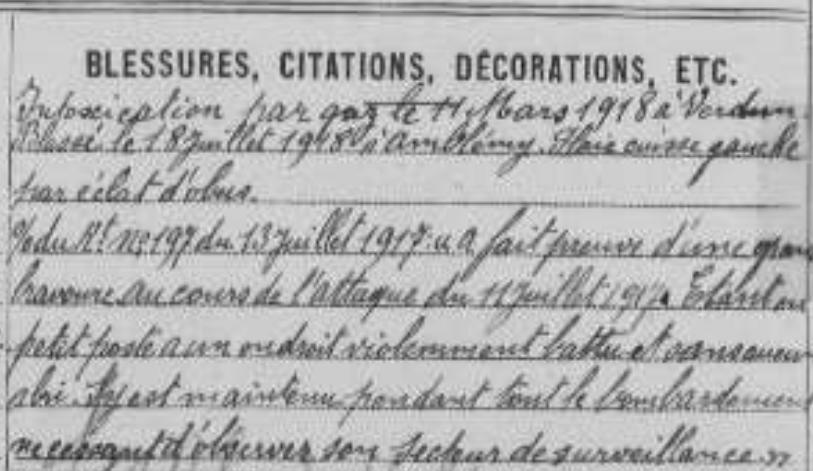 BLESSURES, CITATIONS, DÉCORATIONS, ETC.
Intoxication par gaz le 11 Mars 1918 à Verdun
Blessé le 18 Juillet 1918 à Ambleny. Plaie cuisse gauche
par éclat d'obus.
du Rt no 197 du 13 Juillet 1917 "A fait preuve d'une gran
bravoure au cours de l'attaque du 11 Juillet 1917. Etant en
petit poste à un endroit violemment battu et sans aucun
abri. S'y est maintenu pendant tout le bombardement
ne cessant d'observer son secteur de surveillance "